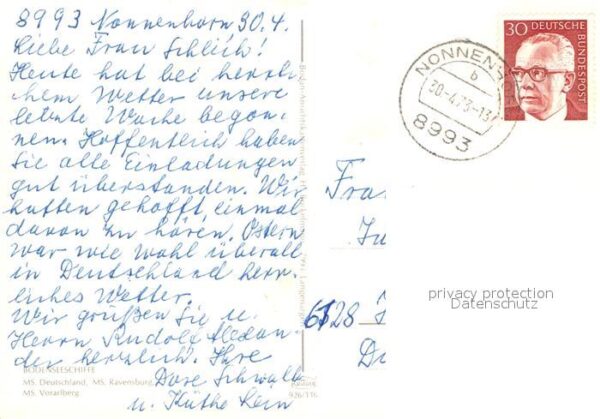 8993 Nonnenhorn 30.4.
Liebe Frau Schlich!
Heute hat bei herrli-
chem Wetter unsere
letzte Woche begon-
nen. Hoffentlich haben
Sie alle Einladungen
gut überstanden. Wir
hatten gehofft, einmal
davon zu hören. Ostern
war wie wohl überall
in Deutschland herr-
liches Wetter.
Wir grüßen Sie u.
Herrn Rudolf Alexan-
der herzlich. Ihre
Dore Schwalb
u. Käthe
BODENSEESCHIFFE
MS. Deutschland, MS. Ravensburg,
MS. Vorarlberg
926/116
30 DEUTSCHE
BUNDESPOST
NONNENH
b
30-4.73-13
8993
Frau
6128
privacy protection
Datenschutz